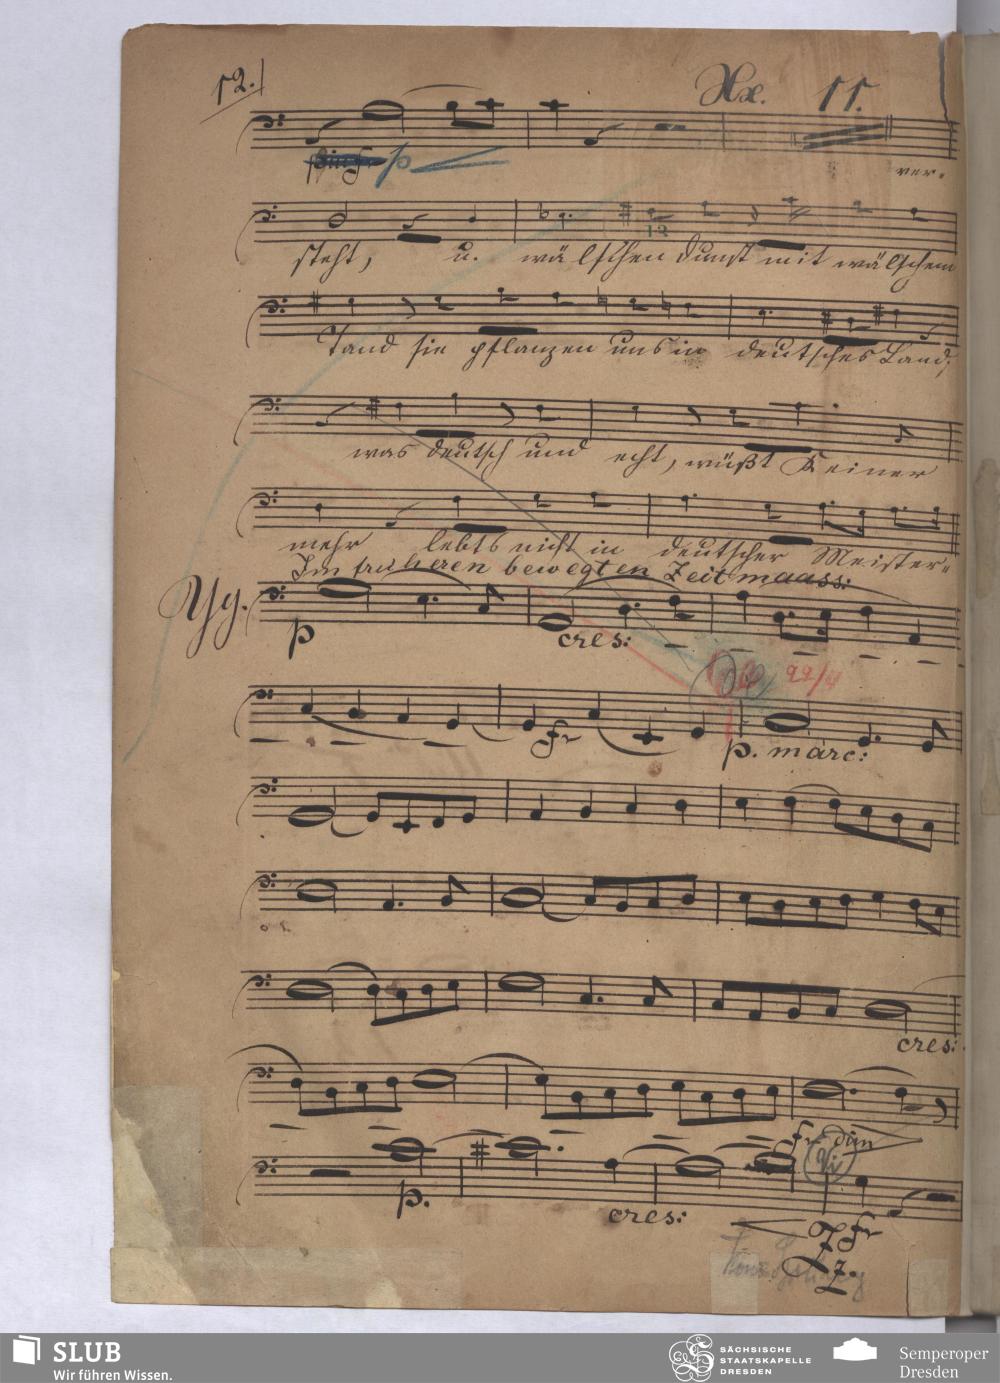 12.
Xx. 11.
p
ver-
12
steht, u. wälschen Dunst mit wälschem
Tand sie pflanzen uns in deutsches Land,
was deutsch und echt, wüßt Keiner
mehr lebts nicht in deutscher Meister-
Im früheren bewegten Zeitmaass:
Yy.
p cres:
22/4
fr p. marc:
cres:
fr dim
p. cres: fr
Zz.
SLUB
Wir führen Wissen.
SÄCHSISCHE
STAATSKAPELLE
DRESDEN
Semperoper
Dresden